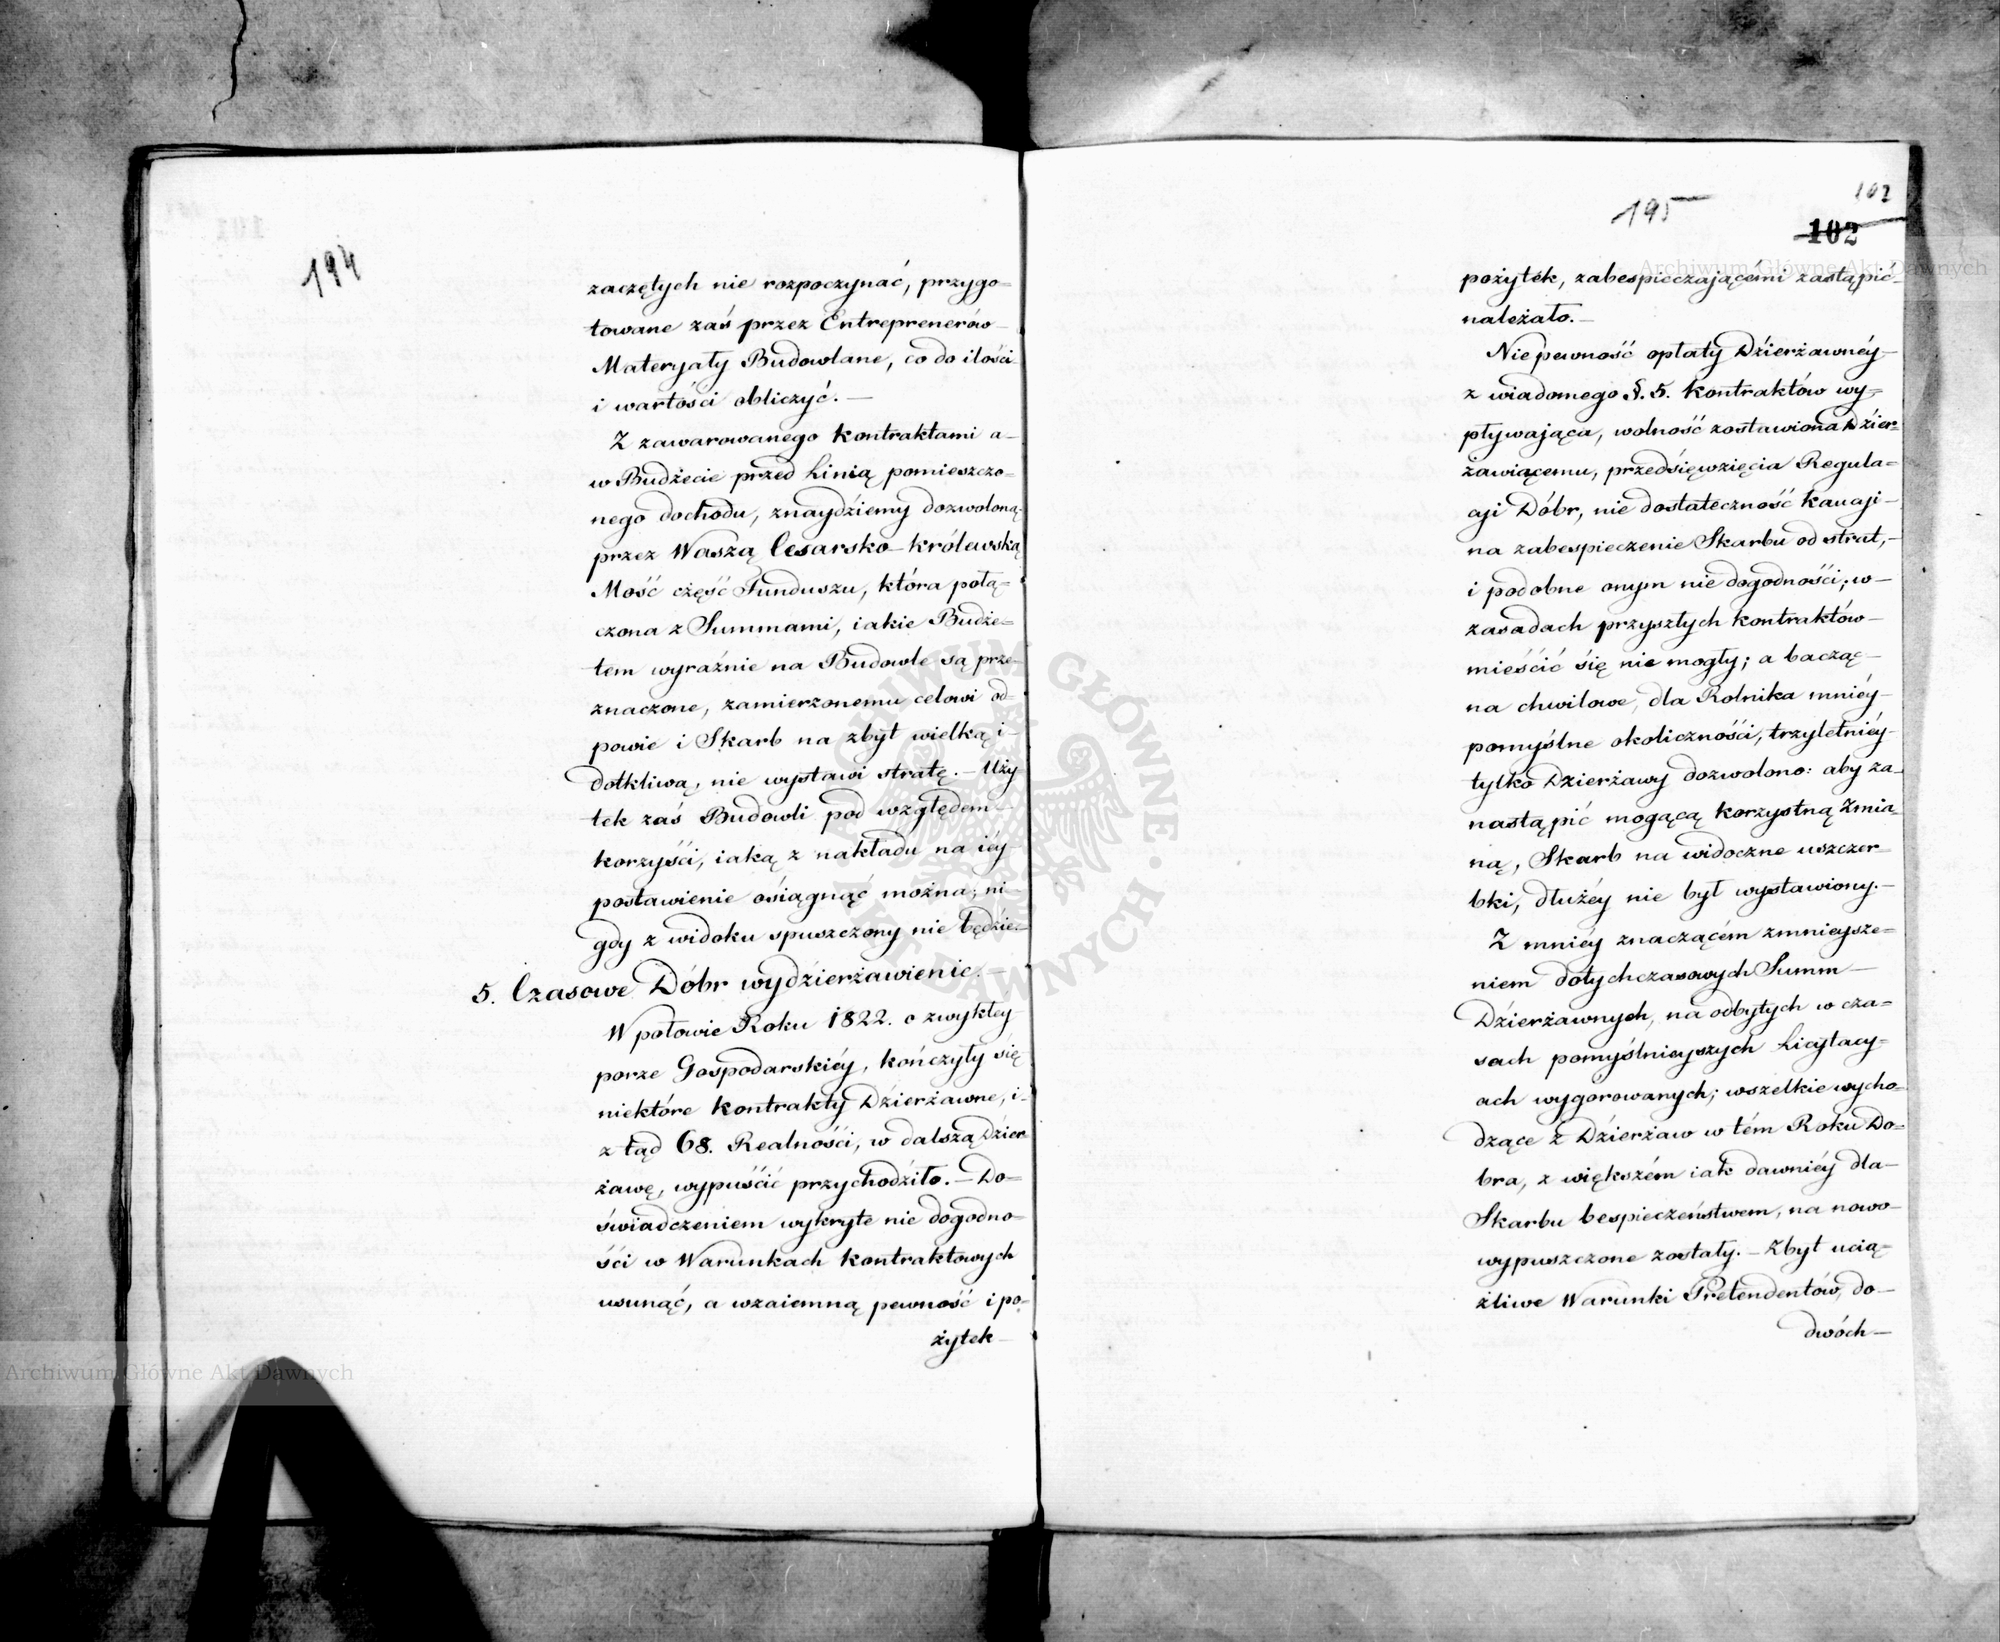 194
zaczętych nie rozpoczynać, przygo=
towane zaś przez Entreprenerów—
Materyały Budowlane, co do ilości
i wartości obliczyć.—
Z zawarowanego kontraktami a—
w Budżecie przed Linią pomieszczo=
nego dochodu, znaydźiemy dozwoloną
przez Waszą Cesarsko-Królewską
Mość część Funduszu, która połą=
czona z Summami, iakie Budże=
tem wyraźnie na Budowle są prze=
znaczone, zamierzonemu celowi od=
powie i Skarb na zbyt wielką i—
dotkliwą, nie wystawi stratę.—Uży
tek zaś Budowli pod względem—
korzyśći, iaką z nakładu na iéy—
postawienie ośiągnąć można, ni—
gdy z widoku spuszczony nie będźie.—
5. Czasowe Dóbr wydźierżawienie.—
W połowie Roku 1822. o zwykłey—
porze Gospodarskiéy, kończyły się
niektóre kontrakty Dźierżawne, i—
z tąd 68. Realnośći, w dalszą Dźier
żawę, wypuśćić przychodźiło.—Do=
świadczeniem wykryte nie dogodno=
śći w Warunkach kontraktowych
usunąć, a wzaiemną pewność i po=
żytek—
195
102
102
pożytek, zabespieczaiącémi zastąpić—
należało.—
Nie pewność opłaty Dźierżawnéy—
z wiadomego §. 5. kontraktów wy=
pływaiąca, wolność zostawiona Dźier=
żawiącemu, przedśięwzięcia Regula=
cyi Dóbr, nie dostateczność kaucyi—
na zabespieczenie Skarbu od strat,—
i podobne onym nie dogodnośći, w—
zasadach przyszłych kontraktów—
mieśćić śię nie mogły; a bacząc—
na chwilowe, dla Rolnika mniéy—
pomyślne okolicznośći, trzyletniéy—
tylko Dźierżawy dozwolono: aby za—
nastąpić mogącą korzystną Zmia=
ną, Skarb na widoczne uszczer=
bki, dłużéy nie był wystawiony.—
Z mniéy znaczącém zmnieysze=
niem dotychczasowych Summ—
Dźierżawnych, na odbytych w cza=
sach pomyślnieyszych Licytacy=
ach wygorowanych; wszelkie wycho=
dzące z Dźierżaw w tém Roku Do=
bra, z większém iak dawniéy dla—
Skarbu bespieczeństwem, na nowo—
wypuszczone zostały.—Zbyt ucią=
żliwe Warunki Pretendentów, do—
dwóch—
Archiwum Główne Akt Dawnych
Archiwum Główne Akt Dawnych
ARCHIWUM GŁÓWNE AKT DAWNYCH